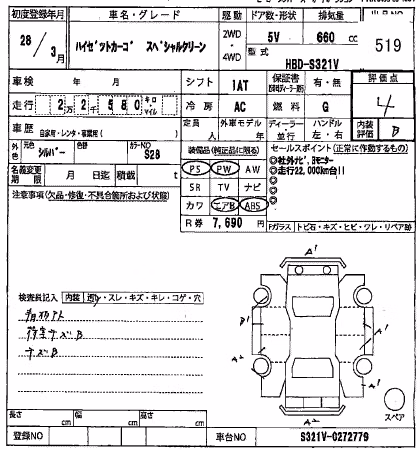 初度登録年月 車名・グレード 駆動 ドア数・形状 排気量
28年3月 ハイゼットカーゴ スペシャルクリーン 2WD・4WD 5V 660 cc 519
型式 HBD-S321V
車検 年 月 シフト 1AT 保証書 有・無 評価点
走行 2万2千580キロ・マイル 冷房 AC 燃料 G 4
車歴 自家用・レンタ・事業用( ) 定員 人 外車モデル 年 ディーラー・並行 ハンドル 左・右 内装評価 B
外色 元色 シルバー 色替 カラーNO S28
装備品(純正品に限る) セールスポイント(正常に作動するもの)
名義変更期限 月 日迄 積載 t PS PW AW
◎社外ナビ、Bモニター
◎走行22,000km台!!
注意事項(欠品・修復・不具合箇所および状態) SR TV ナビ
カワ エアB ABS
R券 7,690円 Fガラス トビ石・キズ・ヒビ・ワレ・リペア跡
検査員記入 内装 汚れ・スレ・キズ・キレ・コゲ・穴
荷室キズB
キズB
A1
B1
A2
A1
A2
スペア
長さ cm 幅 cm 高さ cm
登録NO 車台NO S321V-0272779